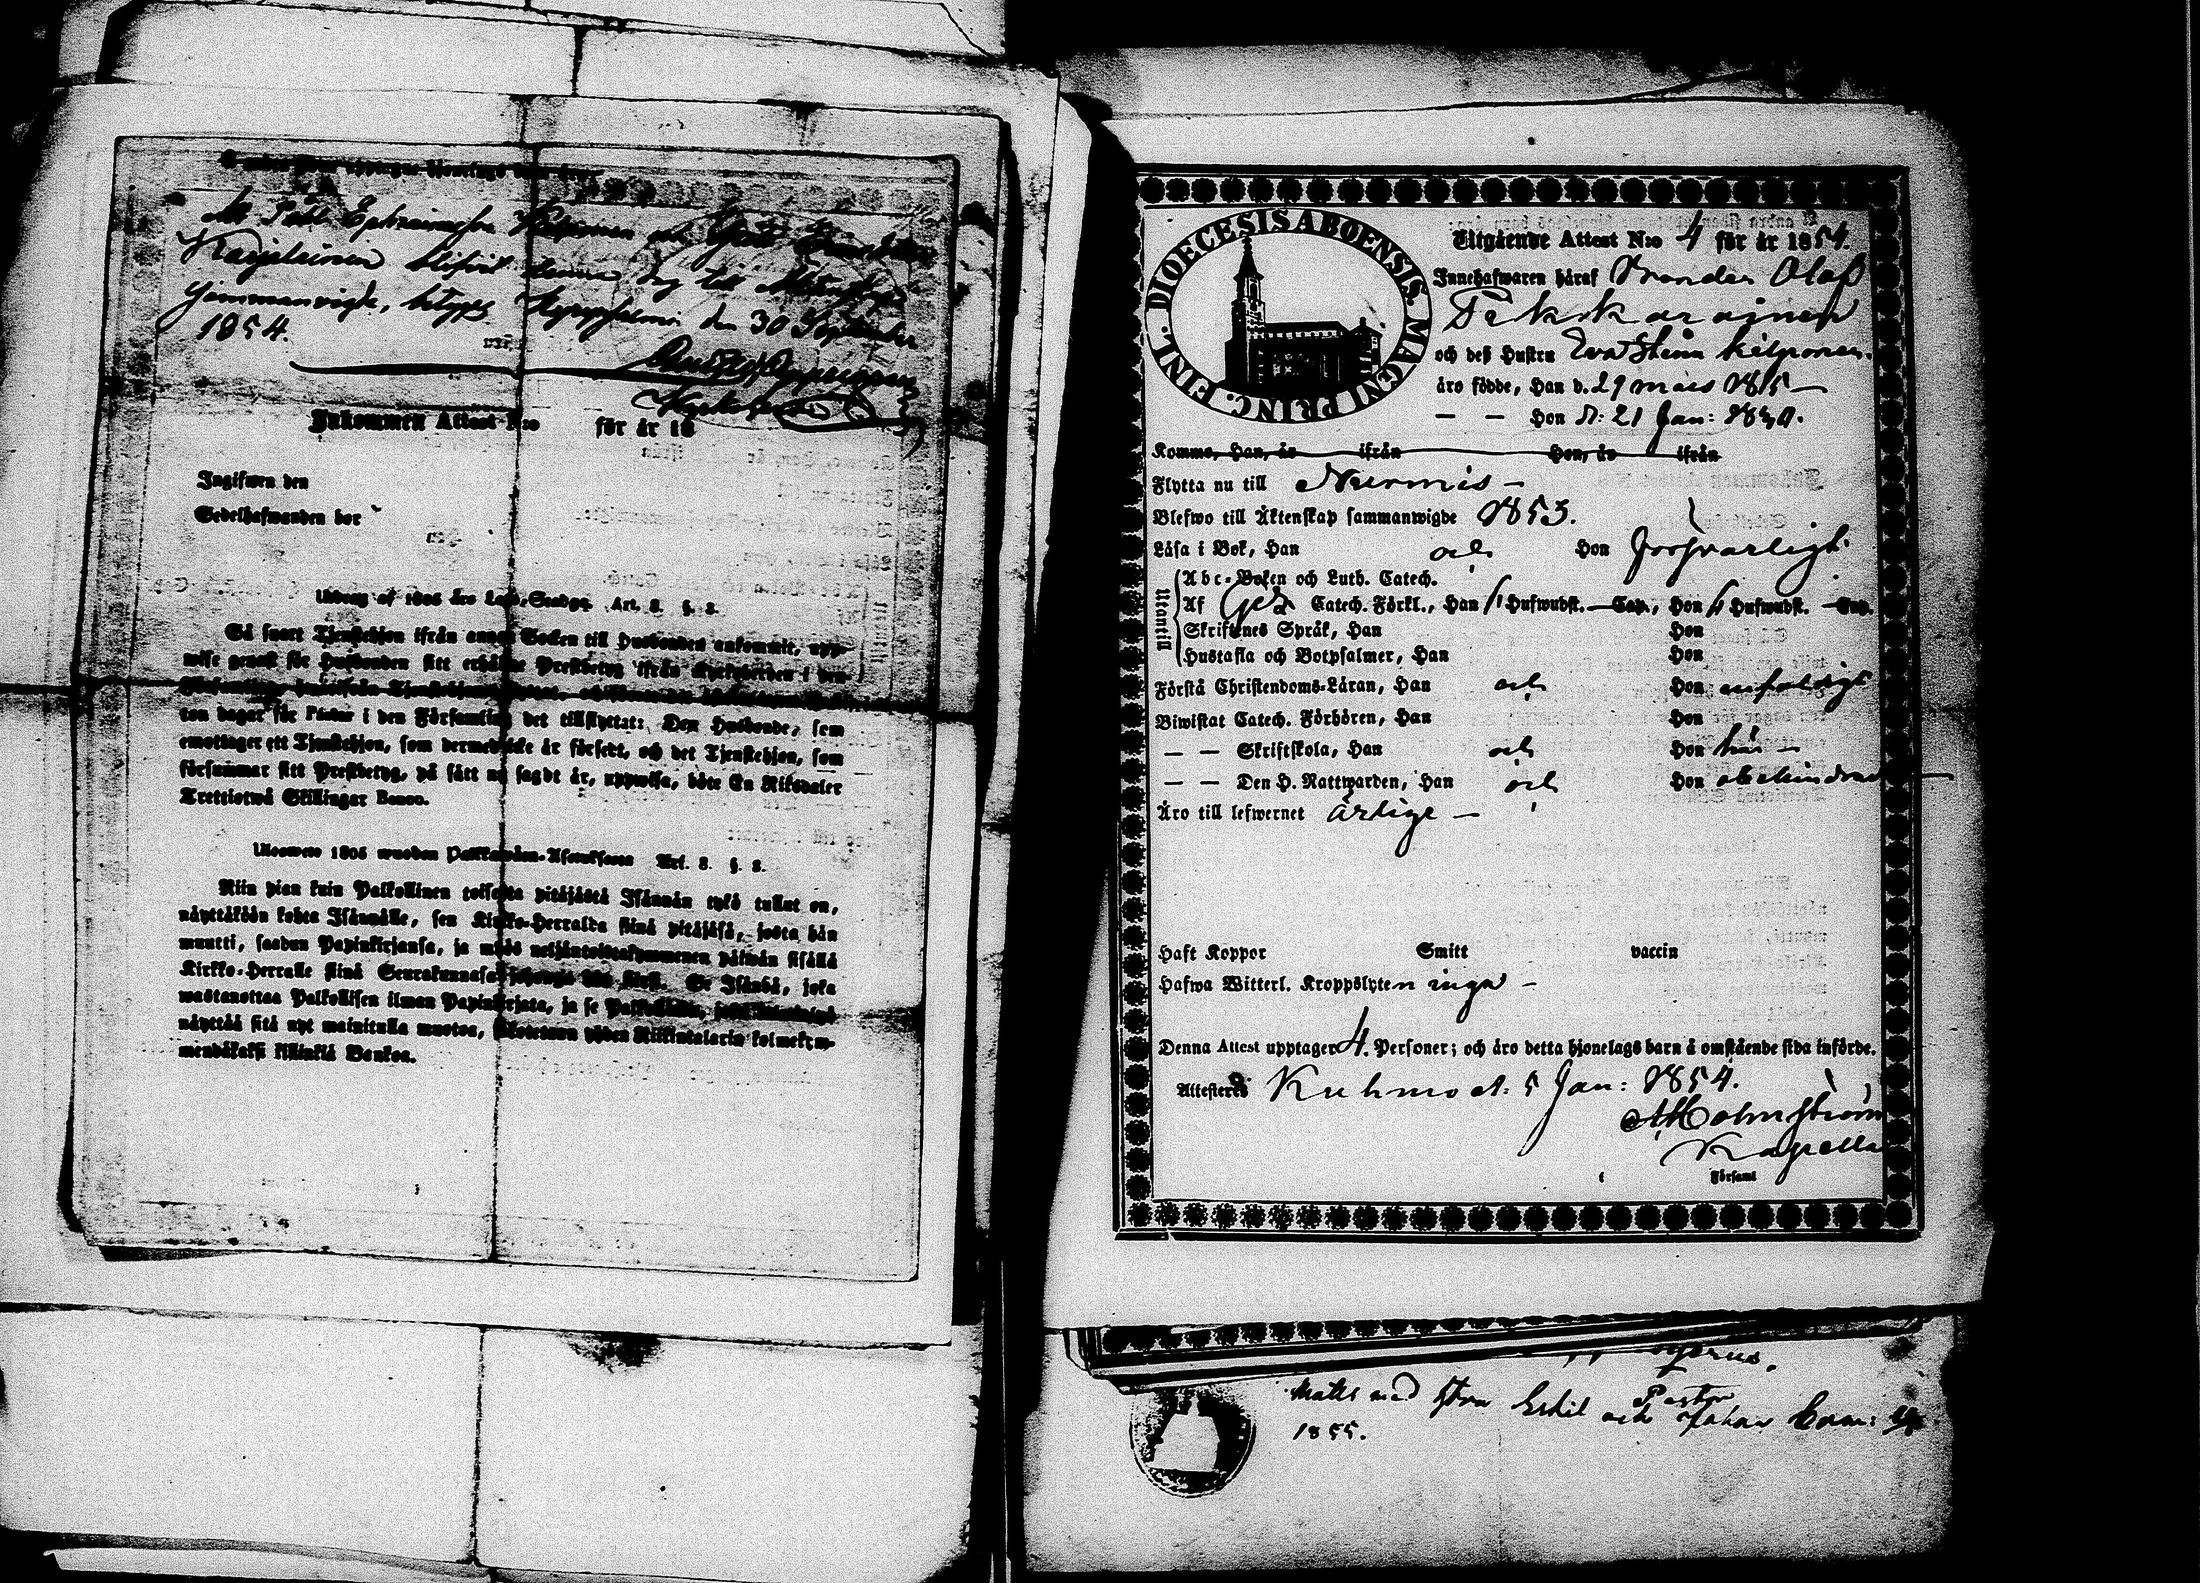 Att Pehr Ephraimsson Kilponen och Greta
Karjalainen blifvit denna dag till Äktenskap
sammanvigde, betygs den 30 September
1854.
Inkommen Attest N:o för år 18
Ingifwen den
Sedelhafwanden bor
Utdrag af 1805 års Lego-Stadga Art. 8. §. 8.
Så snart Tjenstehjon ifrån annan Socken till Husbonden ankommit, upp-
wise genast för Husbonden sitt erhållne Prestbetyg ifrån Kyrkoherden i den
ton dagar för Pastor i den Församling det tillflyttat: Den Husbonde, som
emottager ett Tjenstehjon, som dermed icke är försedt, och det Tjenstehjon, som
försummar sitt Prestbetyg, på sätt nu sagdt är, uppwisa, böte En Riksdaler
Trettiotwå Skillingar Banco.
Ulosweto 1805 wuoden Palkkawäen-Asetuksesta Art. 8. §. 8.
Niin pian kuin Palkollinen toisesta pitäjästä Isännän tykö tullut on,
näyttäköön kohta Isännälle, sen Kirkko-Herralda siinä pitäjäsä, josta hän
muutti, saadun Papinkirjansa, ja myös neljäntoistakymmenen päiwän sisällä
Kirkko-Herralle siinä Seurakunnasa Se Isändä, joka
wastanottaa Palkollisen ilman Papinkirjata, ja se Palkollinen,
näyttää sitä nyt mainitulla muotoa, yhden Riikintalarin kolmekym-
mendäkaksi killinkiä Bankoa.
DIOECESIS ABOENSIS. MAGNI PRINC. FINL.
Utgående Attest N:o 4 för år 1854.
Innehafwaren häraf Bonden Olof
Pekkarainen
och deß Hustru Eva Stina Kilponen.
äro födde, Han d. 29 mars 1815 —
— — Hon d: 21 Jan: 1830.
Komne, Han, år ifrån Hon, år ifrån
Flytta nu till Nurmis —
Blefwo till Äktenskap sammanwigde 1853.
Läsa i Bok, Han och Hon försvarligt
Utantill
Abc-Boken och Luth. Catech.
Af Catech. Förkl., Han Hufwudst. — Cap., Hon Hufwudst. — Cap.
Skriftenes Språk, Han Hon
Hustafla och Botpsalmer, Han Hon
Förstå Christendoms-Läran, Han och Hon enfaldigt
Biwistat Catech. Förhören, Han Hon
— — Skriftskola, Han och Hon här —
— — Den H. Nattwarden, Han och Hon obehindrad
Äro till lefwernet ärlige —
Haft Koppor Smitt vaccin
Hafwa Witterl. Kroppslyten inga —
Denna Attest upptager 4. Personer; och äro detta hjonelags barn å omstående sida införde.
Attesterar Kuhmo d. 5 Jan: 1854.
Holmström
Kapella
Församl
Pastor
Mats med Eskil och Johan
1855.